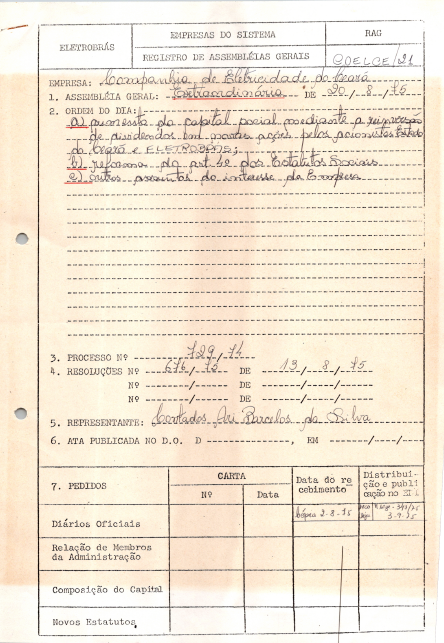 ELETROBRÁS
EMPRESAS DO SISTEMA
REGISTRO DE ASSEMBLÉIAS GERAIS
RAG
COELCE/21
EMPRESA: Companhia de Eletricidade do Ceará
1. ASSEMBLÉIA GERAL: Extraordinária DE 20/8/75
2. ORDEM DO DIA:
a) aumento do capital social mediante a reinversão
de dividendos em novas ações pelos acionistas Estado
do Ceará e ELETROBRÁS;
b) reforma do art. 4º dos Estatutos Sociais
c) outros assuntos do interesse da Empresa
3. PROCESSO Nº 729/74
4. RESOLUÇÕES Nº 676/75 DE 13/8/75
Nº / DE / /
Nº / DE / /
5. REPRESENTANTE: Ari Barcelos da Silva
6. ATA PUBLICADA NO D.O. D , EM / /
7. PEDIDOS
CARTA
Nº
Data
Data do re
cebimento
Distribui-
ção e publi
cação no
Diários Oficiais
2-8-75
3-9-75
Relação de Membros
da Administração
Composição do Capital
Novos Estatutos